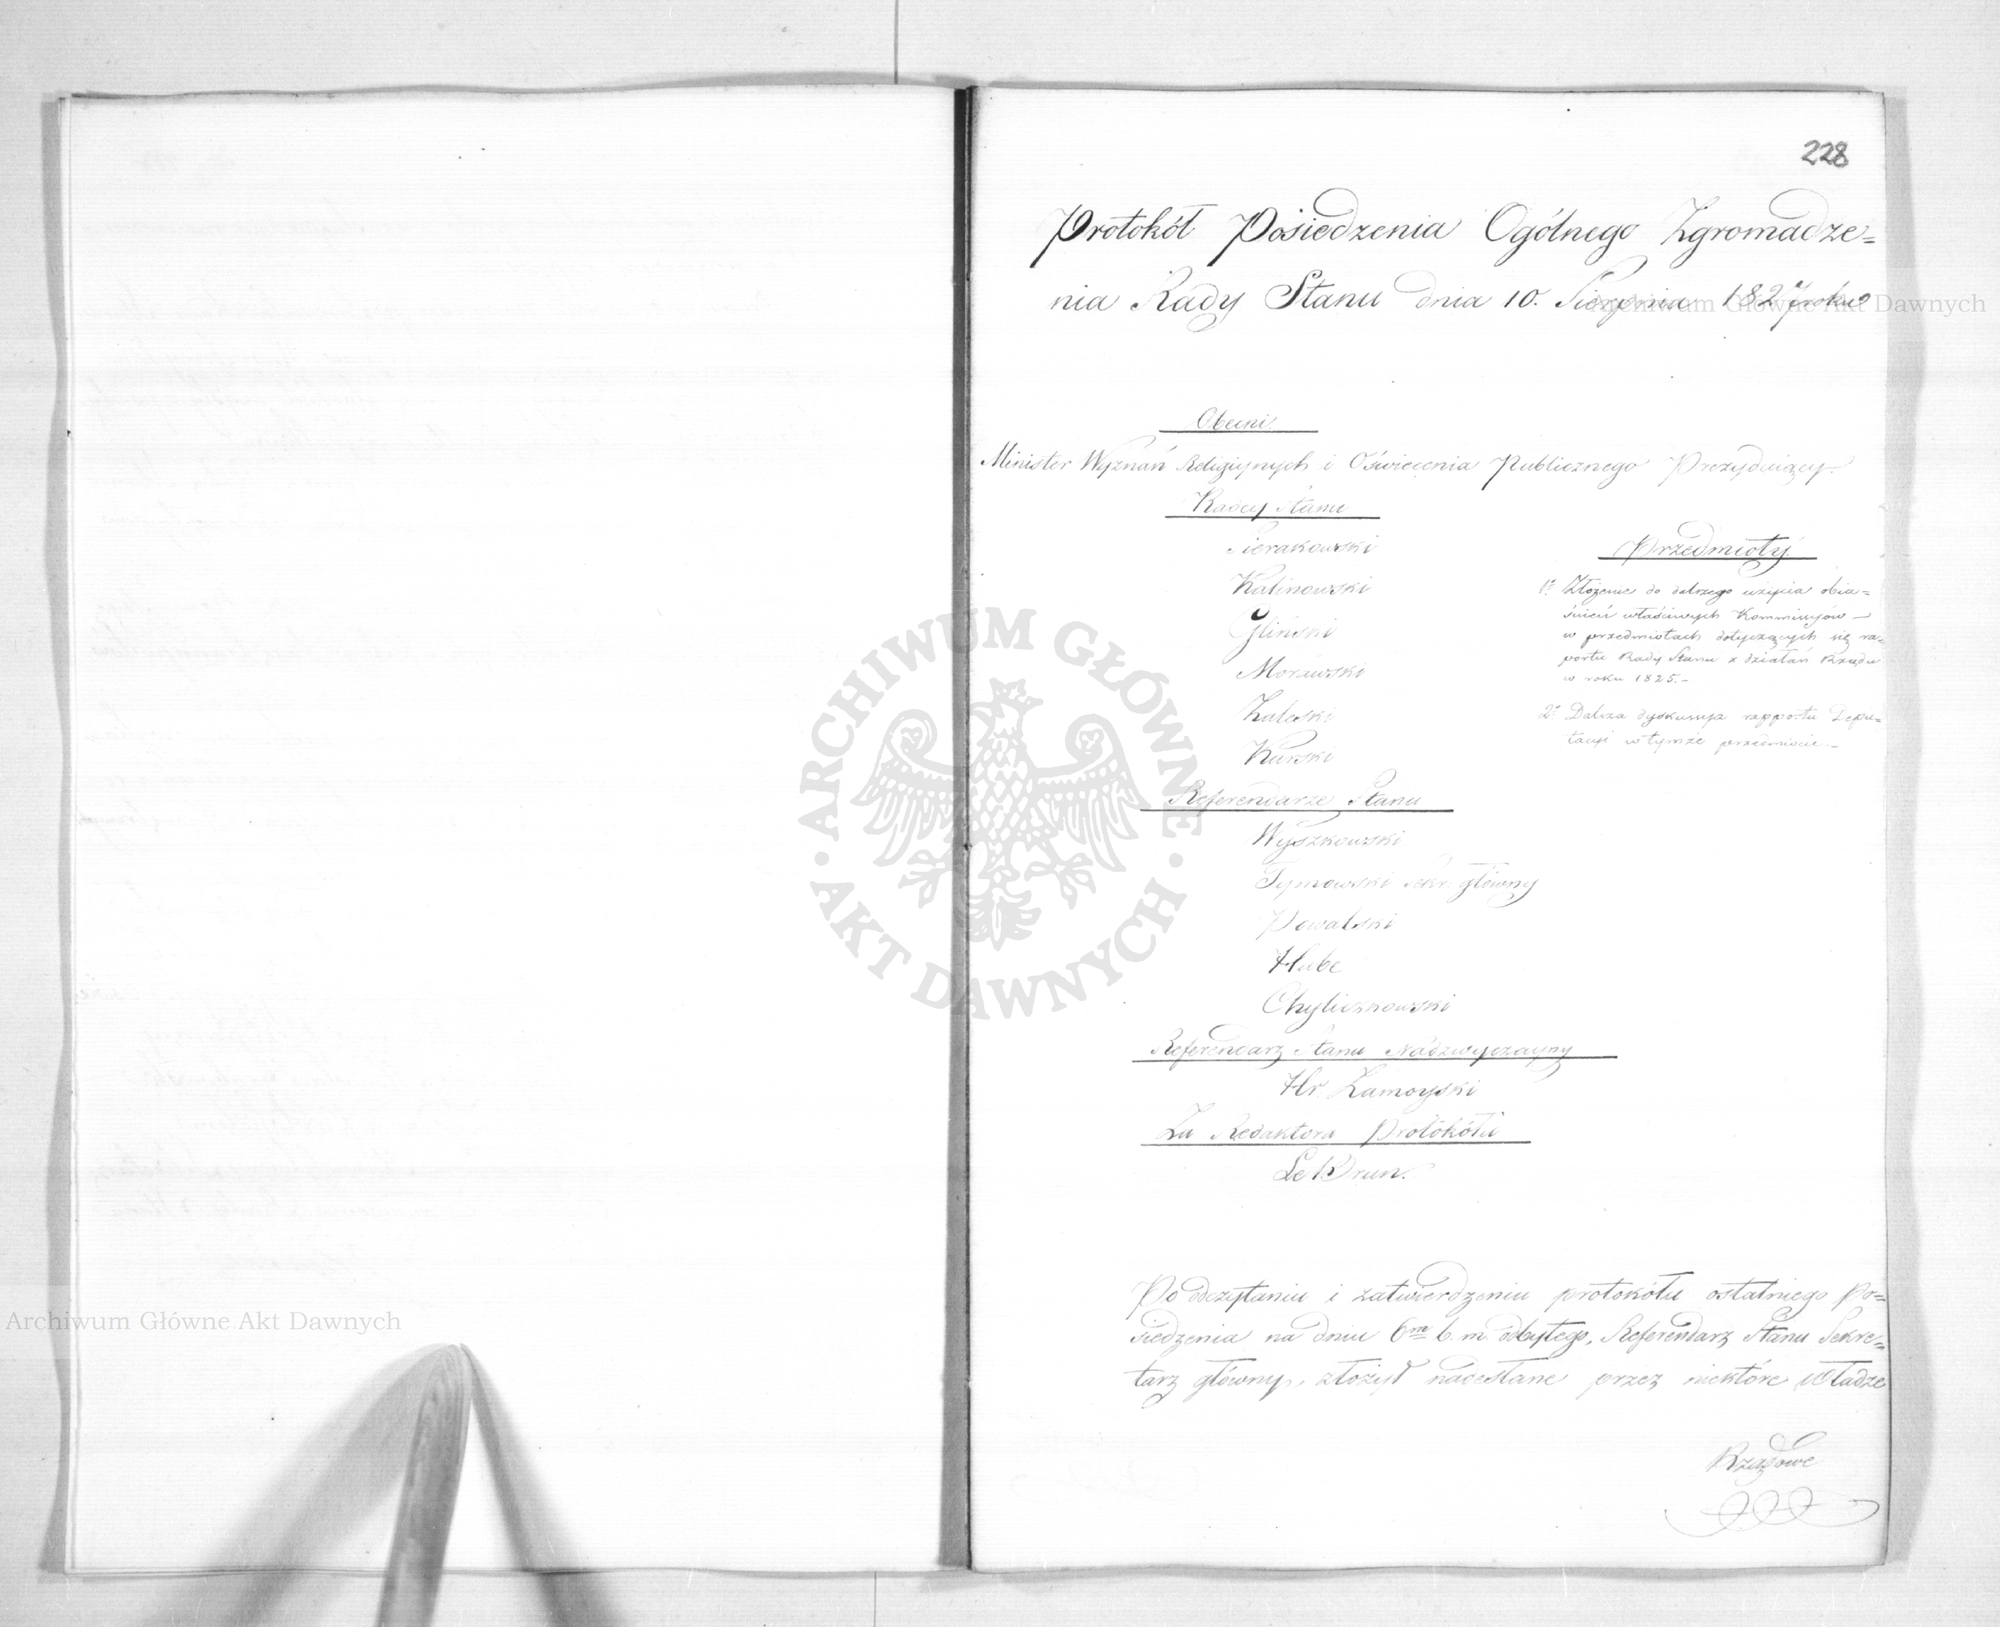 228
Protokół Posiedzenia Ogólnego Zgromadze=
nia Rady Stanu dnia 10. Sierpnia 1827 roku
Obecni
Minister Wyznań Religiynych i Oświecenia Publicznego Prezyduiący.
Radcy Stanu
Sierakowski
Kalinowski
Gliński
Morawski
Zaleski
Kurski
Przedmioty.
1o Złożenie do dalszego użycia obia=
śnień właściwych Kommissyów
w przedmiotach dotyczących się ra=
portu Rady Stanu z działań Rządu
w roku 1825.
2o Dalsza dyskussya rapportu Depu=
tacyi w tymże przedmiocie.
Referendarze Stanu
Wyszkowski
Tymowski Sekr. główny
Powalski
Hube
Chyliczkowski
Referendarz Stanu Nadzwyczayny
Hr. Zamoyski
Za Redaktora Protokółu
Le Brun.
Po odczytaniu i zatwierdzeniu protokółu ostatniego Po=
siedzenia na dniu 6m b. m. odbytego, Referendarz Stanu Sekre=
tarz główny, złożył nadesłane przez niektóre Władze
Rządowe
Archiwum Główne Akt Dawnych
Archiwum Główne Akt Dawnych
ARCHIWUM GŁÓWNE · AKT DAWNYCH ·